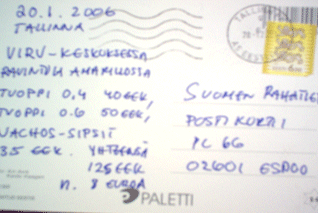 20.1.2006
TALLINNA
VIRU-KESKUKSESSA
RAVINTOLA AMARILLOSSA
TUOPPI 0.4 40 EEK,
TUOPPI 0.6 50 EEK,
NACHOS-SIPSIT
35 EEK. YHTEENSÄ
125 EEK
N. 8 EUROA
TALLINN
SUOMEN
POSTI KORTTI
PL 66
02601 ESPOO
PALETTI